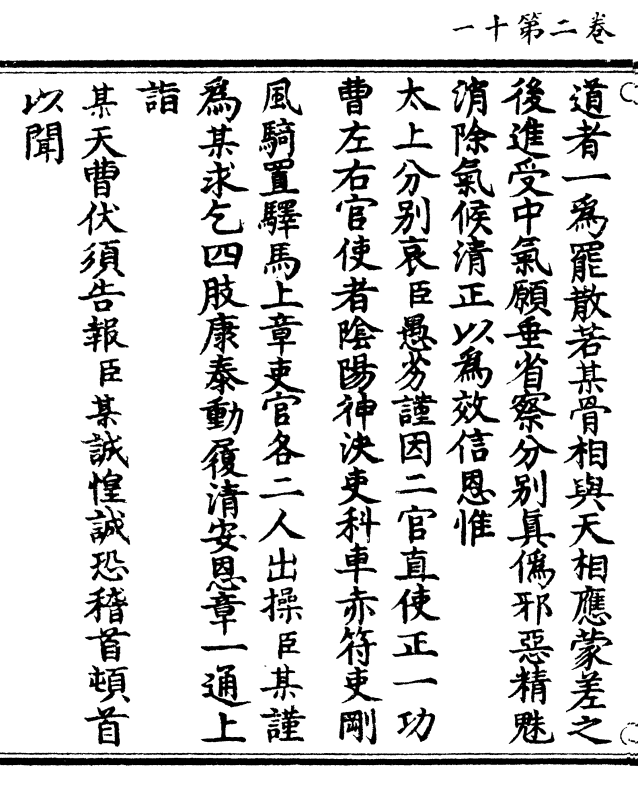 卷二第十一
道者一爲罷散若某骨相與天相應蒙差之
後進受中氣願垂省察分别眞僞邪惡精魅
消除氣候清正以爲效信恩惟
太上分别哀臣愚劣謹因二官直使正一功
曹左右官使者陰陽神決吏科車赤符吏剛
風騎置驛馬上章吏官各二人出操臣某謹
爲某求乞四肢康泰動履清安恩章一通上
詣
某天曹伏須告報臣某誠惶誠恐稽首頓首
以聞